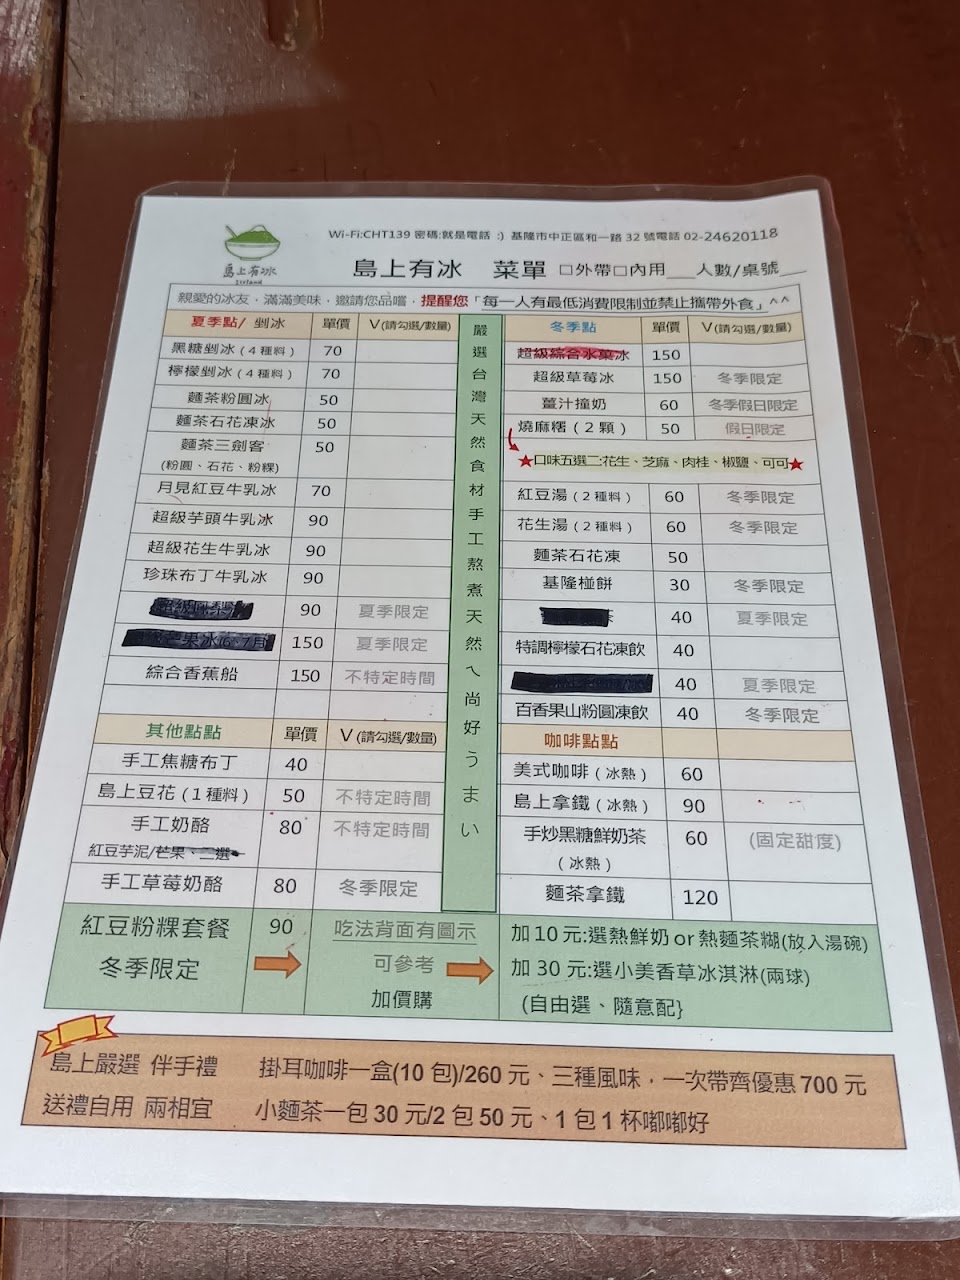 島上有冰
Island
Wi-Fi:CHT139 密碼:就是電話 :) 基隆市中正區和一路 32 號電話 02-24620118
島上有冰 菜單 □外帶□內用___人數/桌號___
親愛的冰友，滿滿美味，邀請您品嚐，提醒您「每一人有最低消費限制並禁止攜帶外食」^^
夏季點/ 剉冰 單價 V(請勾選/數量)
黑糖剉冰(4種料) 70
檸檬剉冰(4種料) 70
麵茶粉圓冰 50
麵茶石花凍冰 50
麵茶三劍客 50
(粉圓、石花、粉粿)
月見紅豆牛乳冰 70
超級芋頭牛乳冰 90
超級花生牛乳冰 90
珍珠布丁牛乳冰 90
90 夏季限定
芒果冰(6、7月) 150 夏季限定
綜合香蕉船 150 不特定時間
其他點點 單價 V(請勾選/數量)
手工焦糖布丁 40
島上豆花(1種料) 50 不特定時間
手工奶酪 80 不特定時間
紅豆芋泥/芒果、二選一
手工草莓奶酪 80 冬季限定
嚴選台灣天然食材手工熬煮天然ㄟ尚好うまい
冬季點 單價 V(請勾選/數量)
超級綜合水菓冰 150
超級草莓冰 150 冬季限定
薑汁撞奶 60 冬季假日限定
燒麻糬(2顆) 50 假日限定
★口味五選二:花生、芝麻、肉桂、椒鹽、可可★
紅豆湯(2種料) 60 冬季限定
花生湯(2種料) 60 冬季限定
麵茶石花凍 50
基隆椪餅 30 冬季限定
40 夏季限定
特調檸檬石花凍飲 40
40 夏季限定
百香果山粉圓凍飲 40 冬季限定
咖啡點點
美式咖啡(冰熱) 60
島上拿鐵(冰熱) 90
手炒黑糖鮮奶茶 60 (固定甜度)
(冰熱)
麵茶拿鐵 120
紅豆粉粿套餐 90
冬季限定
吃法背面有圖示
可參考
加價購
加10元:選熱鮮奶or熱麵茶糊(放入湯碗)
加30元:選小美香草冰淇淋(兩球)
(自由選、隨意配}
島上嚴選 伴手禮 掛耳咖啡一盒(10包)/260元、三種風味，一次帶齊優惠700元
送禮自用 兩相宜 小麵茶一包30元/2包50元、1包1杯嘟嘟好